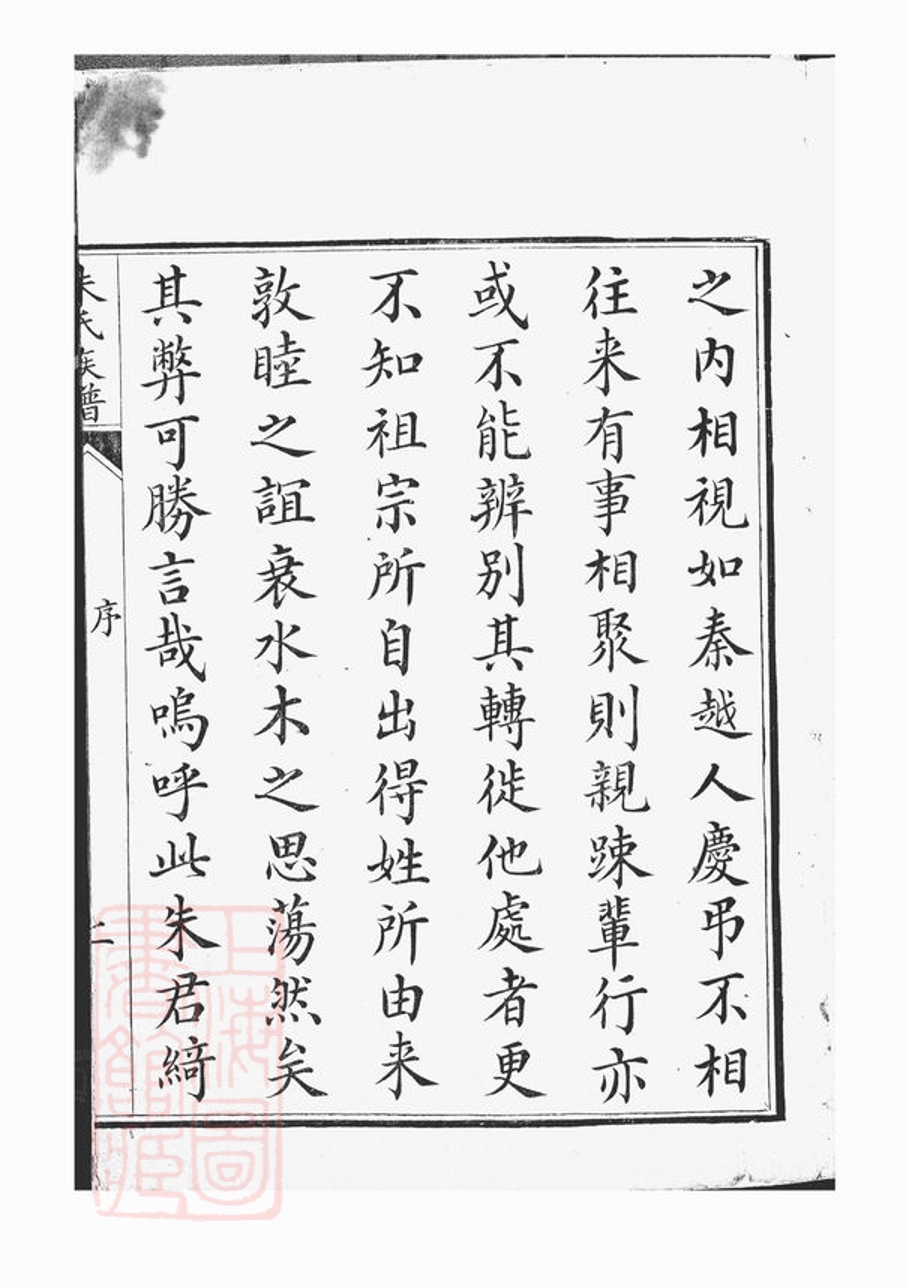 之内相視如秦越人慶弔不相
往来有事相聚則親踈輩行亦
或不能辨别其轉徙他處者更
不知祖宗所自出得姓所由来
敦睦之誼衰水木之思蕩然矣
其弊可勝言哉嗚呼此朱君綺
朱氏族普
序
二
上海圖書館藏